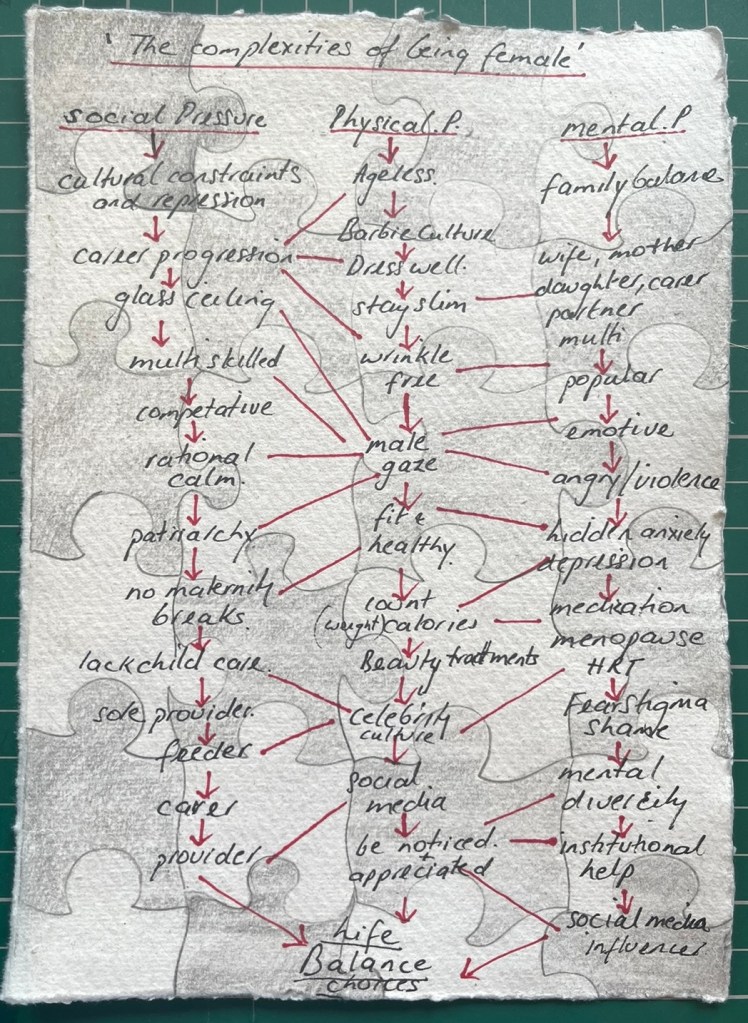 'The complexities of being female'
social Pressure
cultural constraints
and repression
career progression
glass ceiling
multi skilled
competative
rational
calm.
patriarchy
no maternity
breaks.
lack child care.
sole provider.
feeder
carer
provider
Physical.P.
Ageless.
Barbie Culture
Dress well.
stay slim
wrinkle
free
male
gaze
fit &
healthy.
count
(weight) calories
Beauty treatments
celebrity
culture
social
media
be noticed.
+
appreciated
mental.P
family balance
wife, mother
daughter, carer
partner
multi
popular
emotive
angry/violence
hidden anxiety
depression
medication
menopause
HRT
Fear stigma
shame
mental
divercity
institutional
help
social media
influencer
Life
Balance
choices